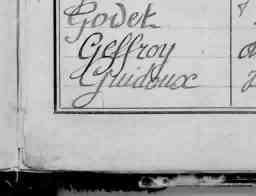 Godet
Geffroy
Guidoux